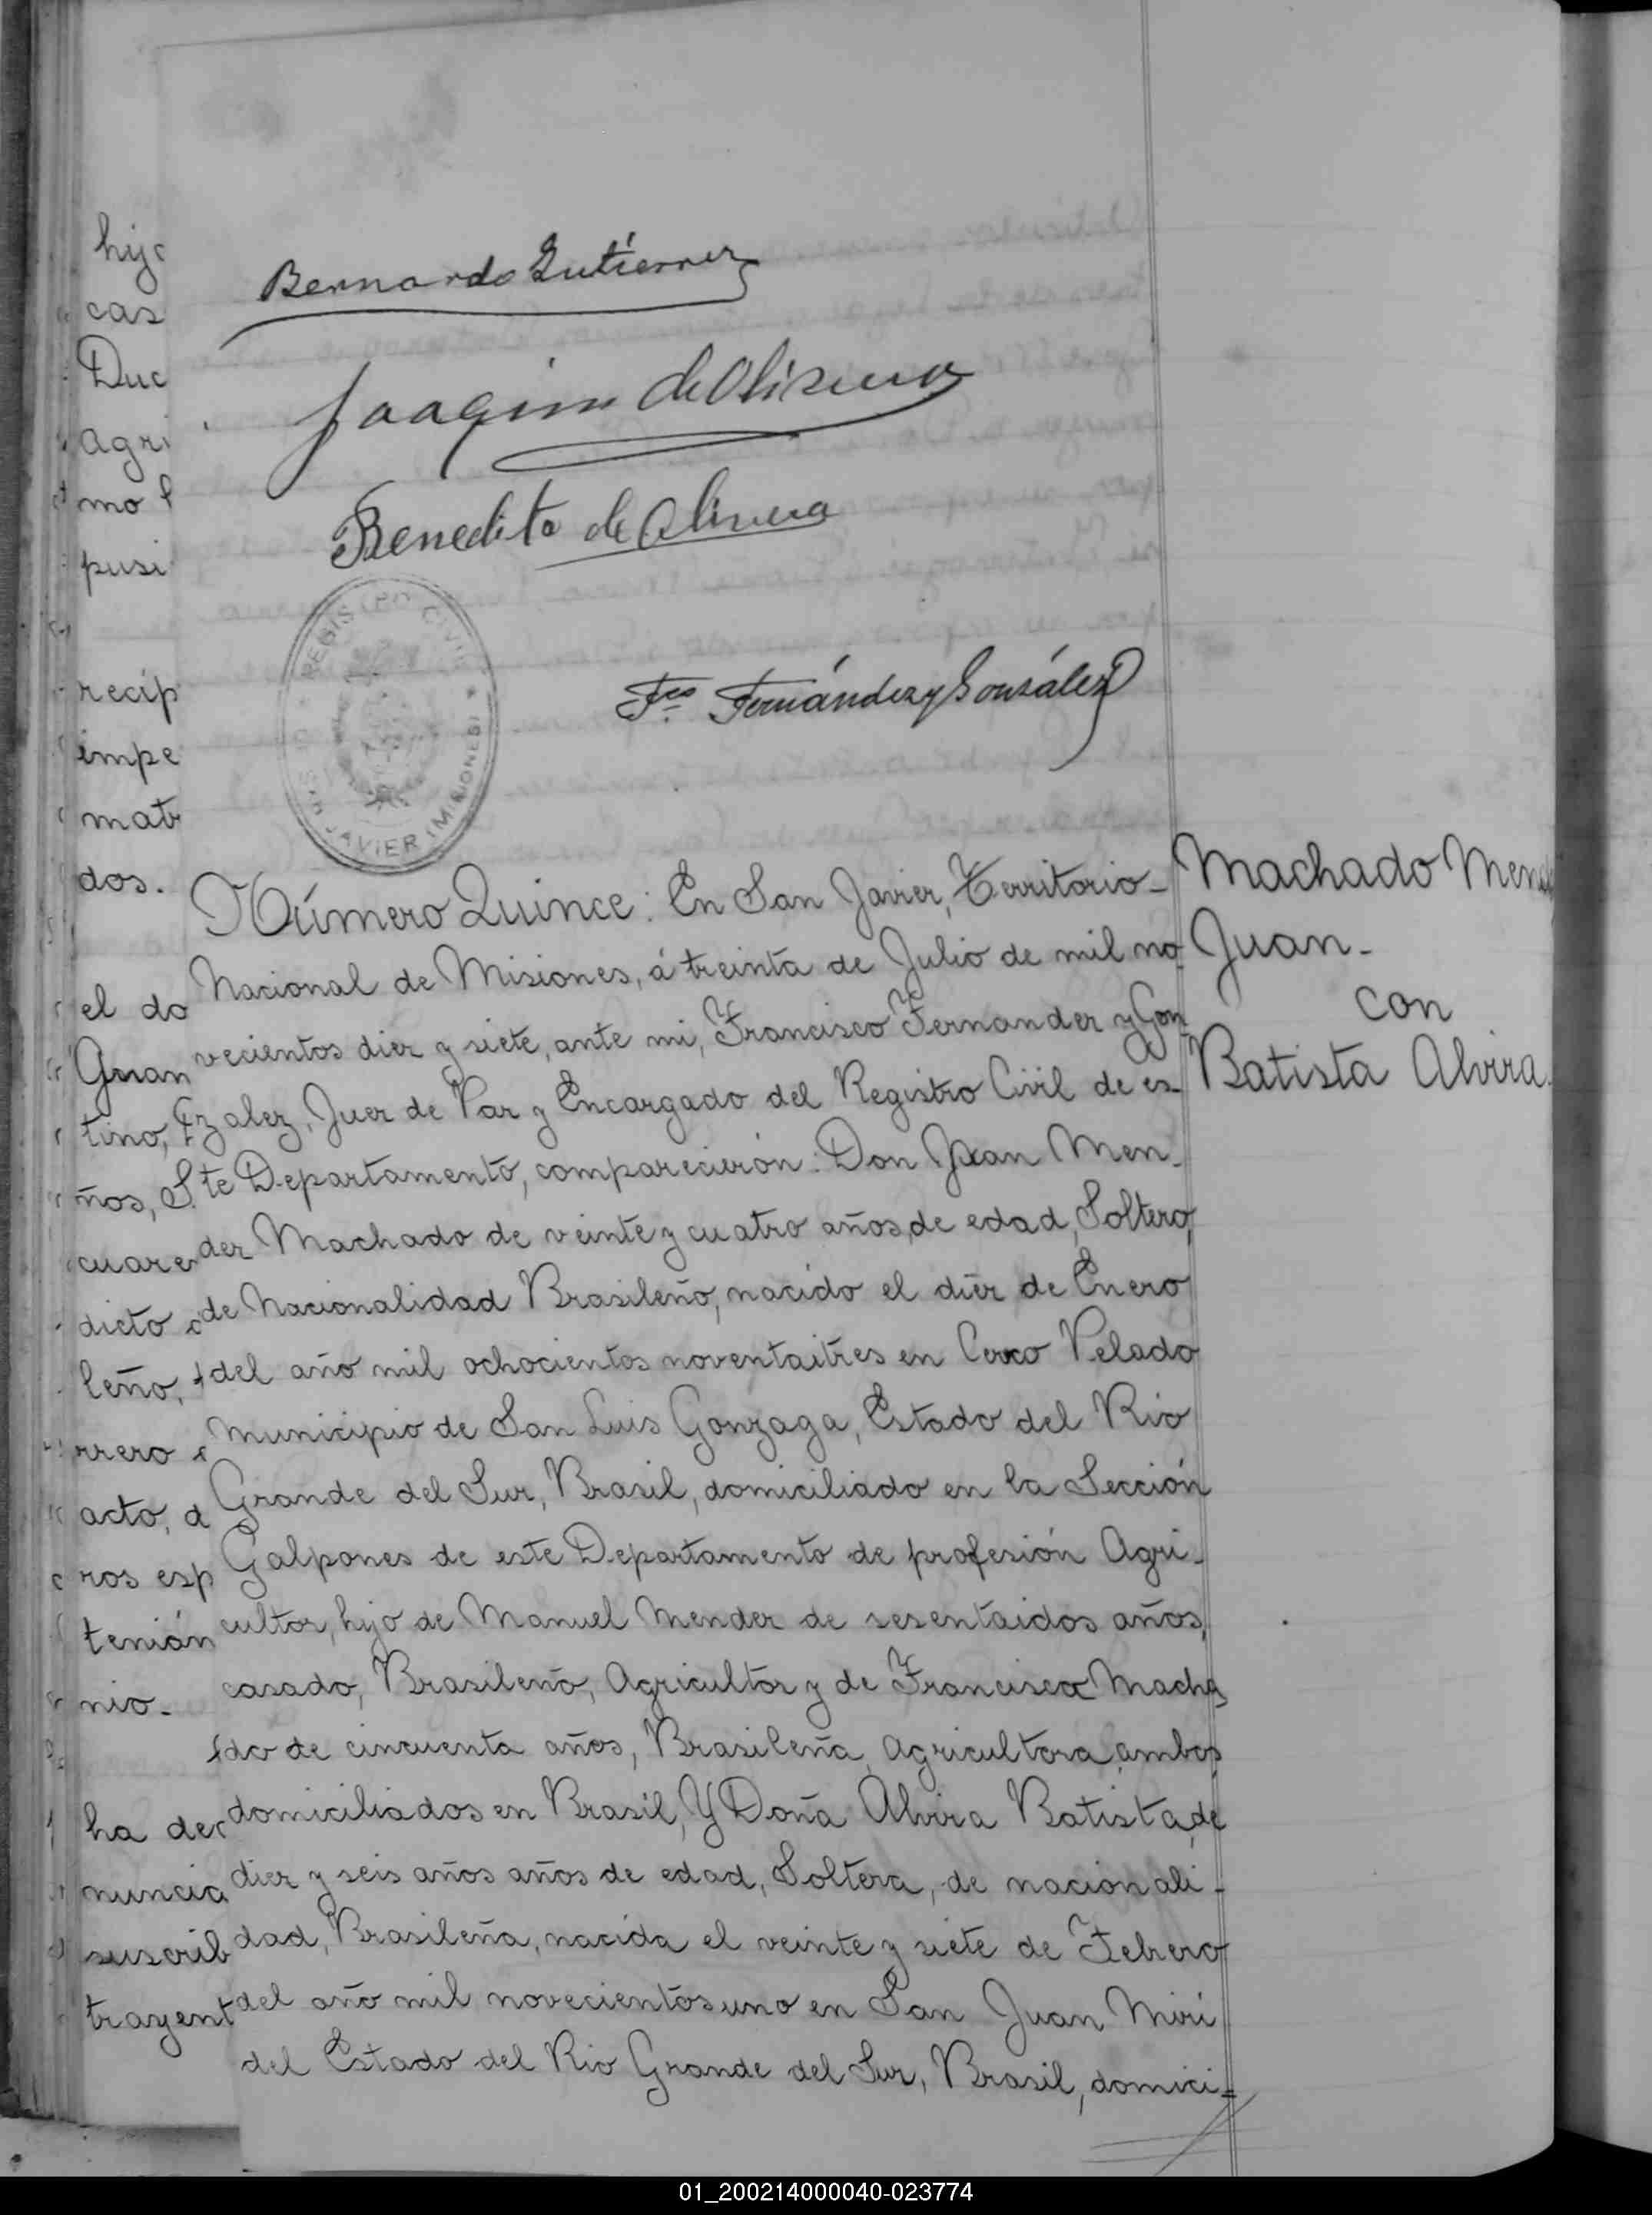 Bernardo Gutiérrez
Joaquim de Olivera
Benedito de Olivera
REGISTRO CIVIL
SAN JAVIER (MISIONES)
Fco Fernández y González
Número Quince: En San Javier, Territorio-
Nacional de Misiones, á treinta de Julio de mil no-
vecientos diez y siete, ante mi, Francisco Fernandez y Gon
zalez, Juez de Paz y Encargado del Registro Civil de es-
te Departamento, comparecieron: Don Juan Men-
dez Machado de veinte y cuatro años, de edad, Soltero,
de Nacionalidad Brasileño, nacido el diez de Enero
del año mil ochocientos noventaitres en Cerro Pelado
Municipio de San Luis Gonzaga, Estado del Rio
Grande del Sur, Brasil, domiciliado en la Sección
Galpones de este Departamento de profesión Agri-
cultor, hijo de Manuel Mendez de sesentaidos años,
casado, Brasileño, Agricultor y de Francisca Macha
do de cincuenta años, Brasileña, Agricultora, ambos
domiciliados en Brasil, Y Doña Alvira Batista, de
diez y seis años años de edad, Soltera, de nacionali-
dad, Brasileña, nacida el veinte y siete de Febrero
del año mil novecientos uno en San Juan Miri
del Estado del Rio Grande del Sur, Brasil, domici-
Machado Men
Juan-
con
Batista Alvira.
hij
cas
Duc
agri
mo
pusi
recip
impe
mat
dos.
el do
Guan
tino,
ños, S.
cuare
dicto
leño,
rrero
acto, a
ros esp
tenián
nio-
ha dec
nuncia
suscrib
trayent
01_200214000040-023774